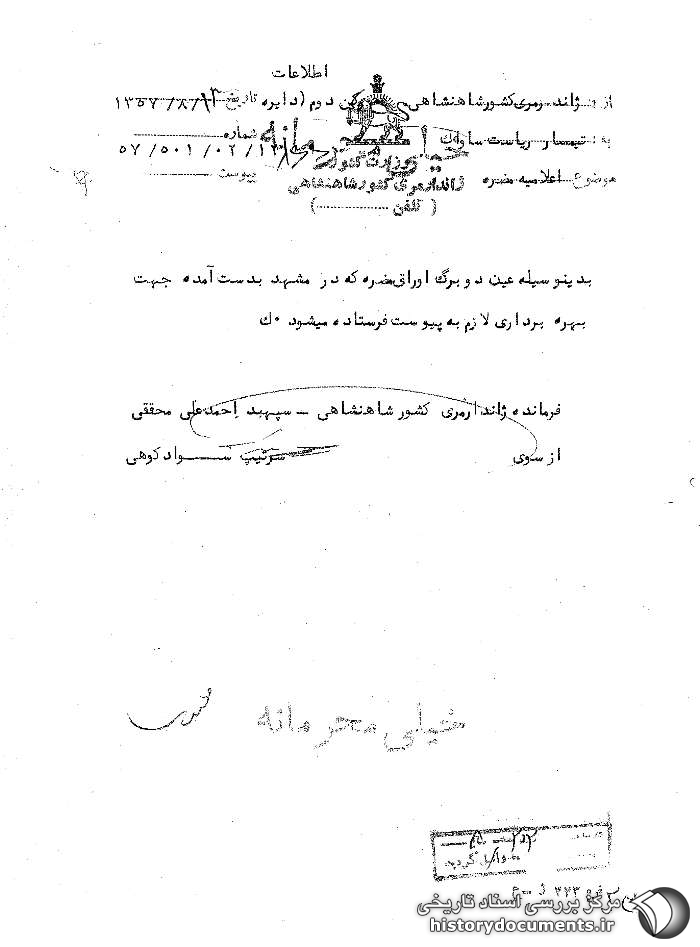 اطلاعات
از : ژاندارمری کشور شاهنشاهی رکن دوم (دایره تاریخ ۱۳۵۷/۸/
به : تیمسار ریاست ساواک شماره
خیلی محرمانه
وزارت کشور ۵۷/۵۰۱/۰۲/
موضوع اعلامیه مضره ژاندارمری کشور شاهنشاهی پیوست
( تلفن )
بدینوسیله عین دو برگ اوراق مضره که در مشهد بدست آمده جهت
بهره برداری لازم به پیوست فرستاده میشود ۰ ك
فرمانده ژاندارمری کشور شاهنشاهی – سپهبد احمدعلی محققی
از سوی سرتیپ سوادکوهی
خیلی محرمانه
مرکز بررسی اسناد تاریخی
historydocuments.ir